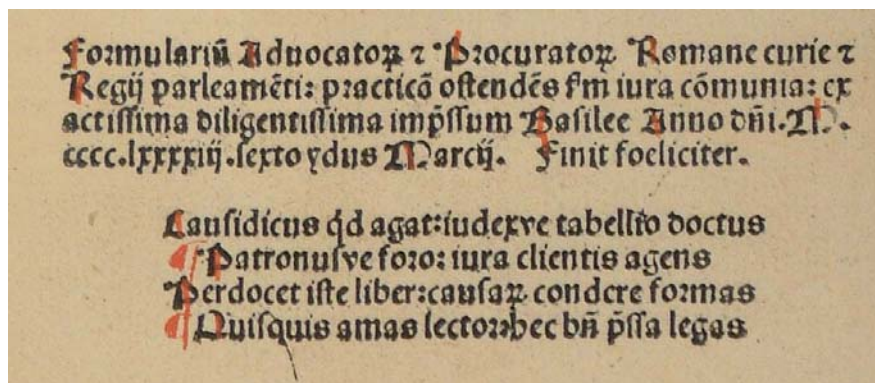 Formulariū Aduocatoꝝ ⁊ Procuratoꝝ Romane curie ⁊
Regij parleamēti: practicā ostendēs ẜm iura cōmunia: ex
actissima diligentissima imp̄ssum Basilee Anno dn̄i. M.
cccc.lxxxxiij. sexto ydus Marcij. Finit foeliciter.
Causidicus qd̄ agat: iudexve tabellio doctus
¶ Patronusve foro: iura clientis agens
Perdocet iste liber: causaꝝ condere formas
¶ Quisquis amas lector: hec bn̄ p̄ssa legas